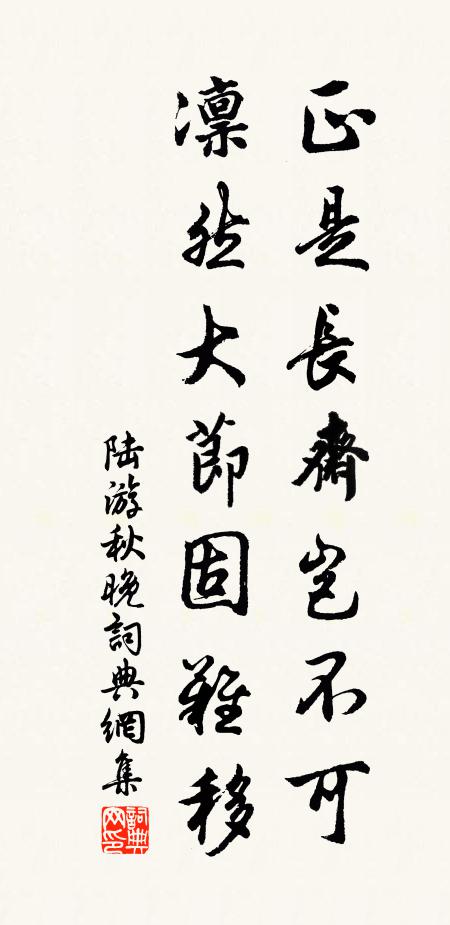 正是長齋豈不可
凛然大節固難移
陸游秋晚詞典網集
詞典网印